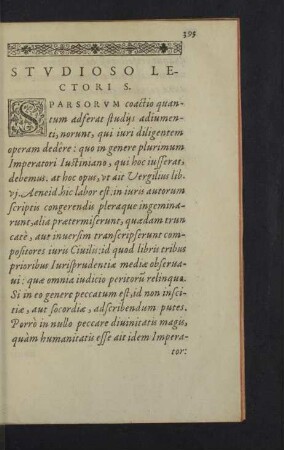 395
STVDIOSO LE-
CTORI S.
SPARSORVM coactio quan-
tum adferat studijs adiumen-
ti, norunt, qui iuri diligentem
operam dedêre: quo in genere plurimum
Imperatori Iustiniano, qui hoc iusserat,
debemus. at hoc opus, vt ait Vergilius lib.
vj. Aeneid. hic labor est: in iuris autorum
scriptis congerendis pleraque ingemina-
runt, alia prætermiserunt, quædam trun
catè, aut inuersim transcripserunt com-
positores iuris Ciuilis: id quod libris tribus
prioribus Iurisprudentiæ mediæ obserua-
ui: quæ omnia iudicio peritorũ relinquo.
Si in eo genere peccatum est, id non insci-
tiæ, aut socordiæ, adscribendum putes.
Porrò in nullo peccare diuinitatis magis,
quàm humanitatis esse ait idem Impera-
tor: